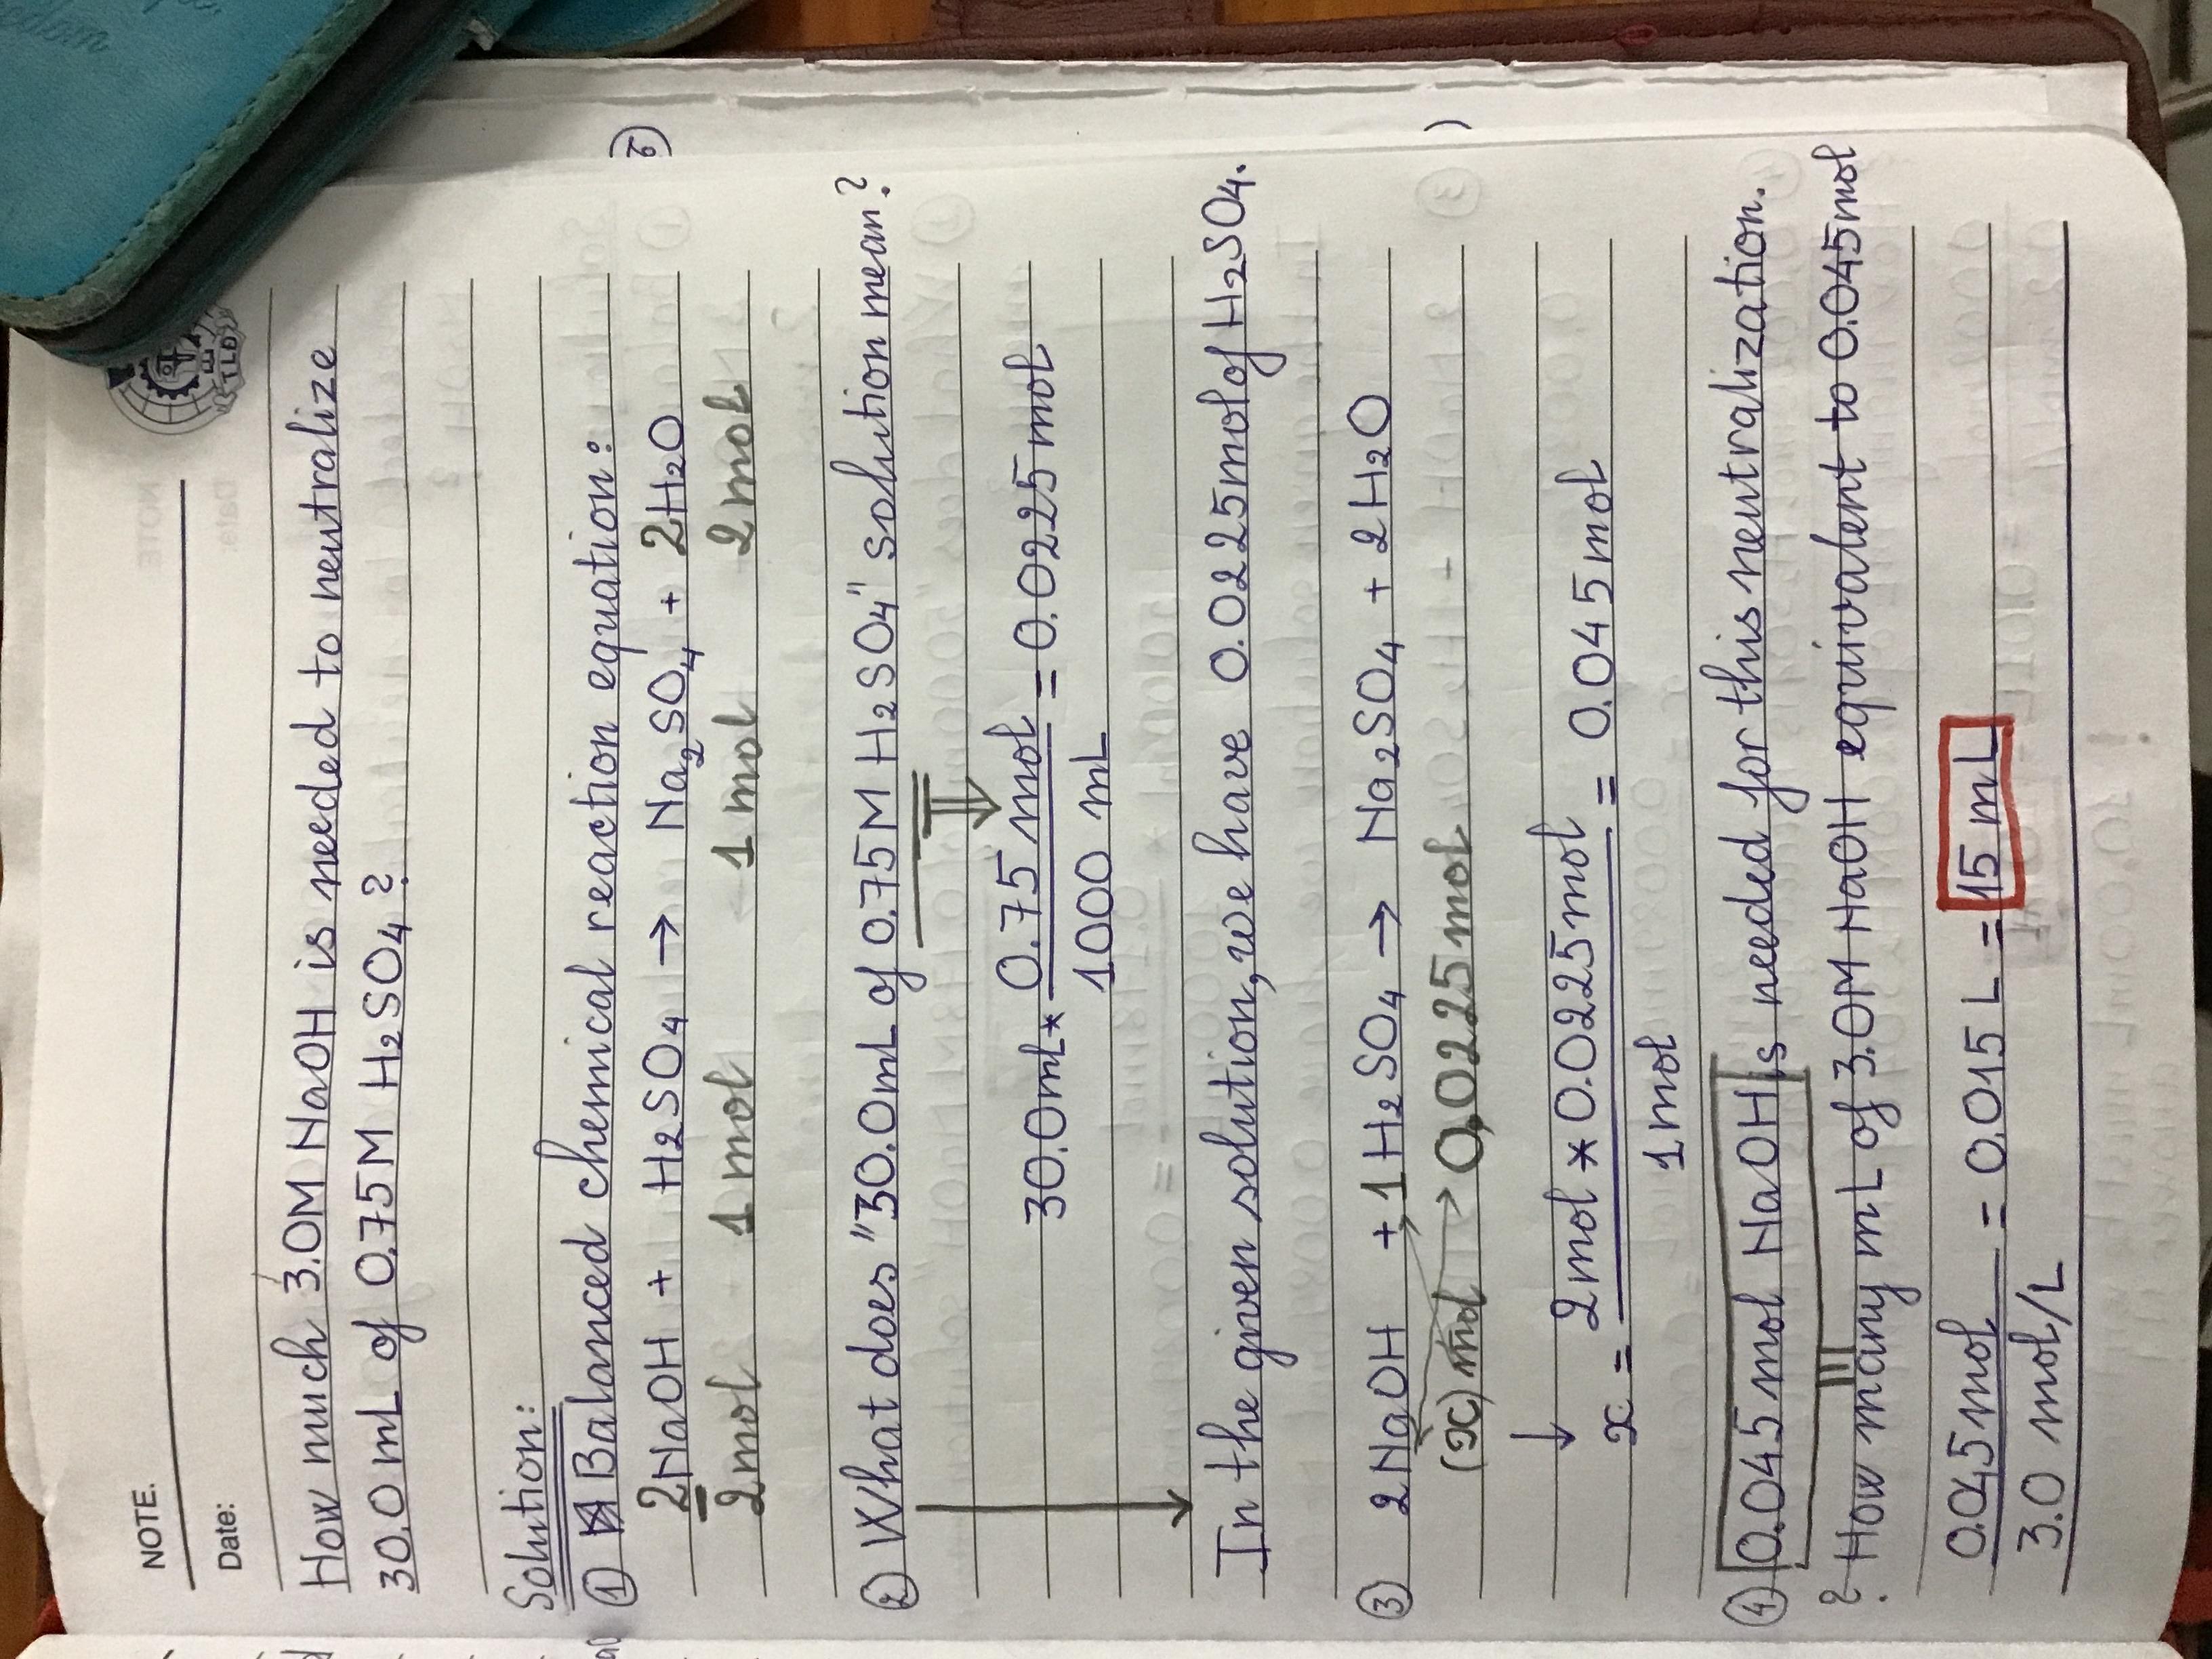 NOTE.
Date:
How much 3.0M NaOH is needed to neutralize
30.0 mL of 0.75M H₂SO₄ ?
Solution:
① Balanced chemical reaction equation:
2NaOH + H₂SO₄ → Na₂SO₄ + 2H₂O
2mol 1mol 1mol 2mol
② What does "30.0mL of 0.75M H₂SO₄" solution mean?
30.0mL * 0.75 mol / 1000 mL = 0.0225 mol
In the given solution, we have 0.0225mol of H₂SO₄.
③ 2NaOH + 1H₂SO₄ → Na₂SO₄ + 2H₂O
(x) mol 0,0225mol
x = 2mol * 0.0225mol / 1mol = 0.045mol
④ 0.045mol NaOH is needed for this neutralization.
? How many mL of 3.0M NaOH equivalent to 0.045mol
0.045mol / 3.0 mol/L = 0.015 L = 15 mL